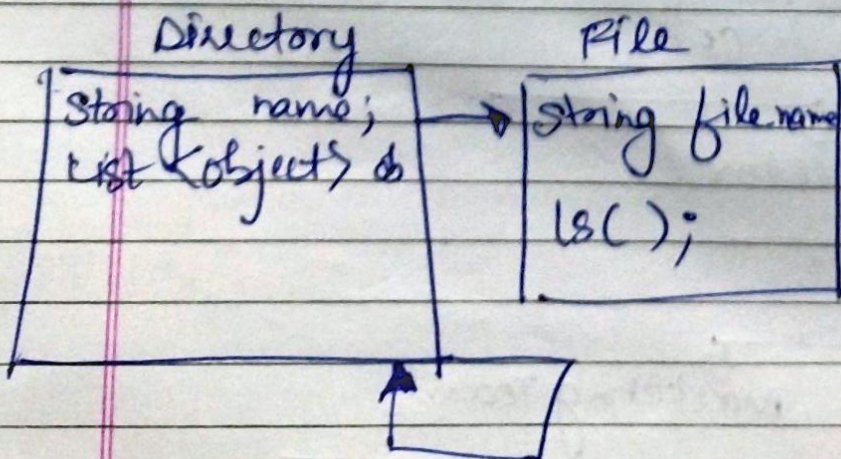 Directory
File
String name;
List <object> ob
String filename
ls();